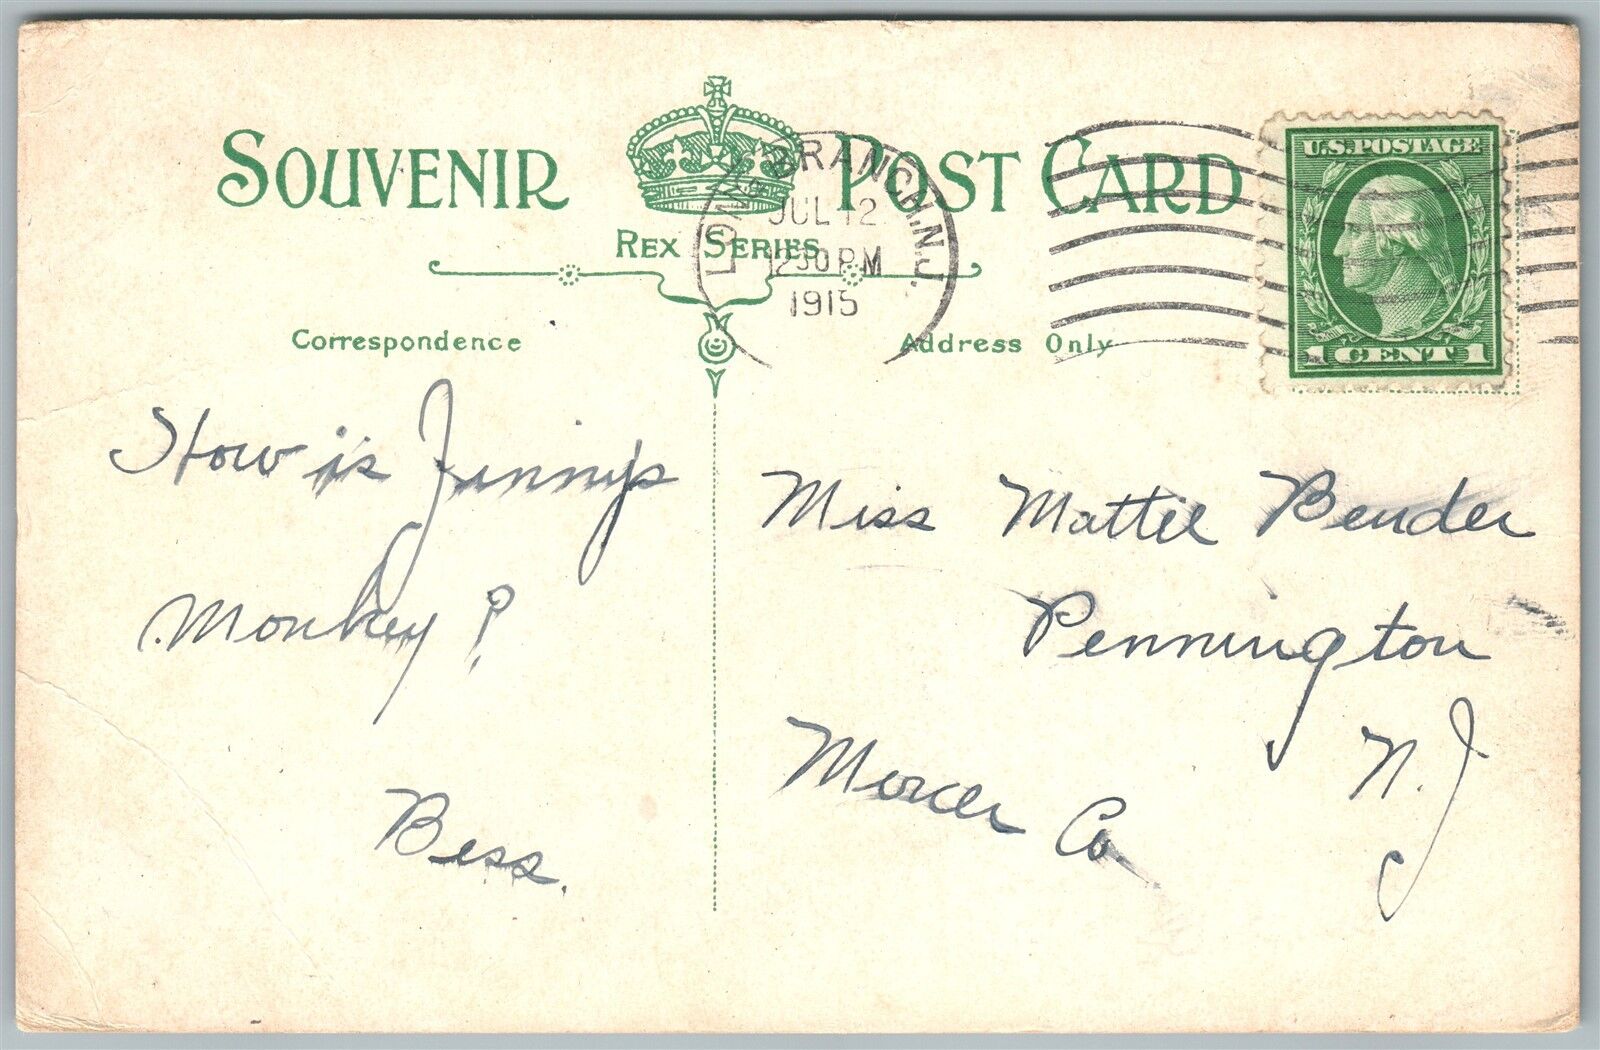 SOUVENIR POST CARD
REX SERIES
LONG BRANCH, N.J.
JUL 12
230 PM
1915
U.S. POSTAGE
1 CENT 1
Correspondence
Address Only
How is Jinny's
Monkey?
Bess.
Miss Mattie Bender
Pennington
Mercer Co N.J